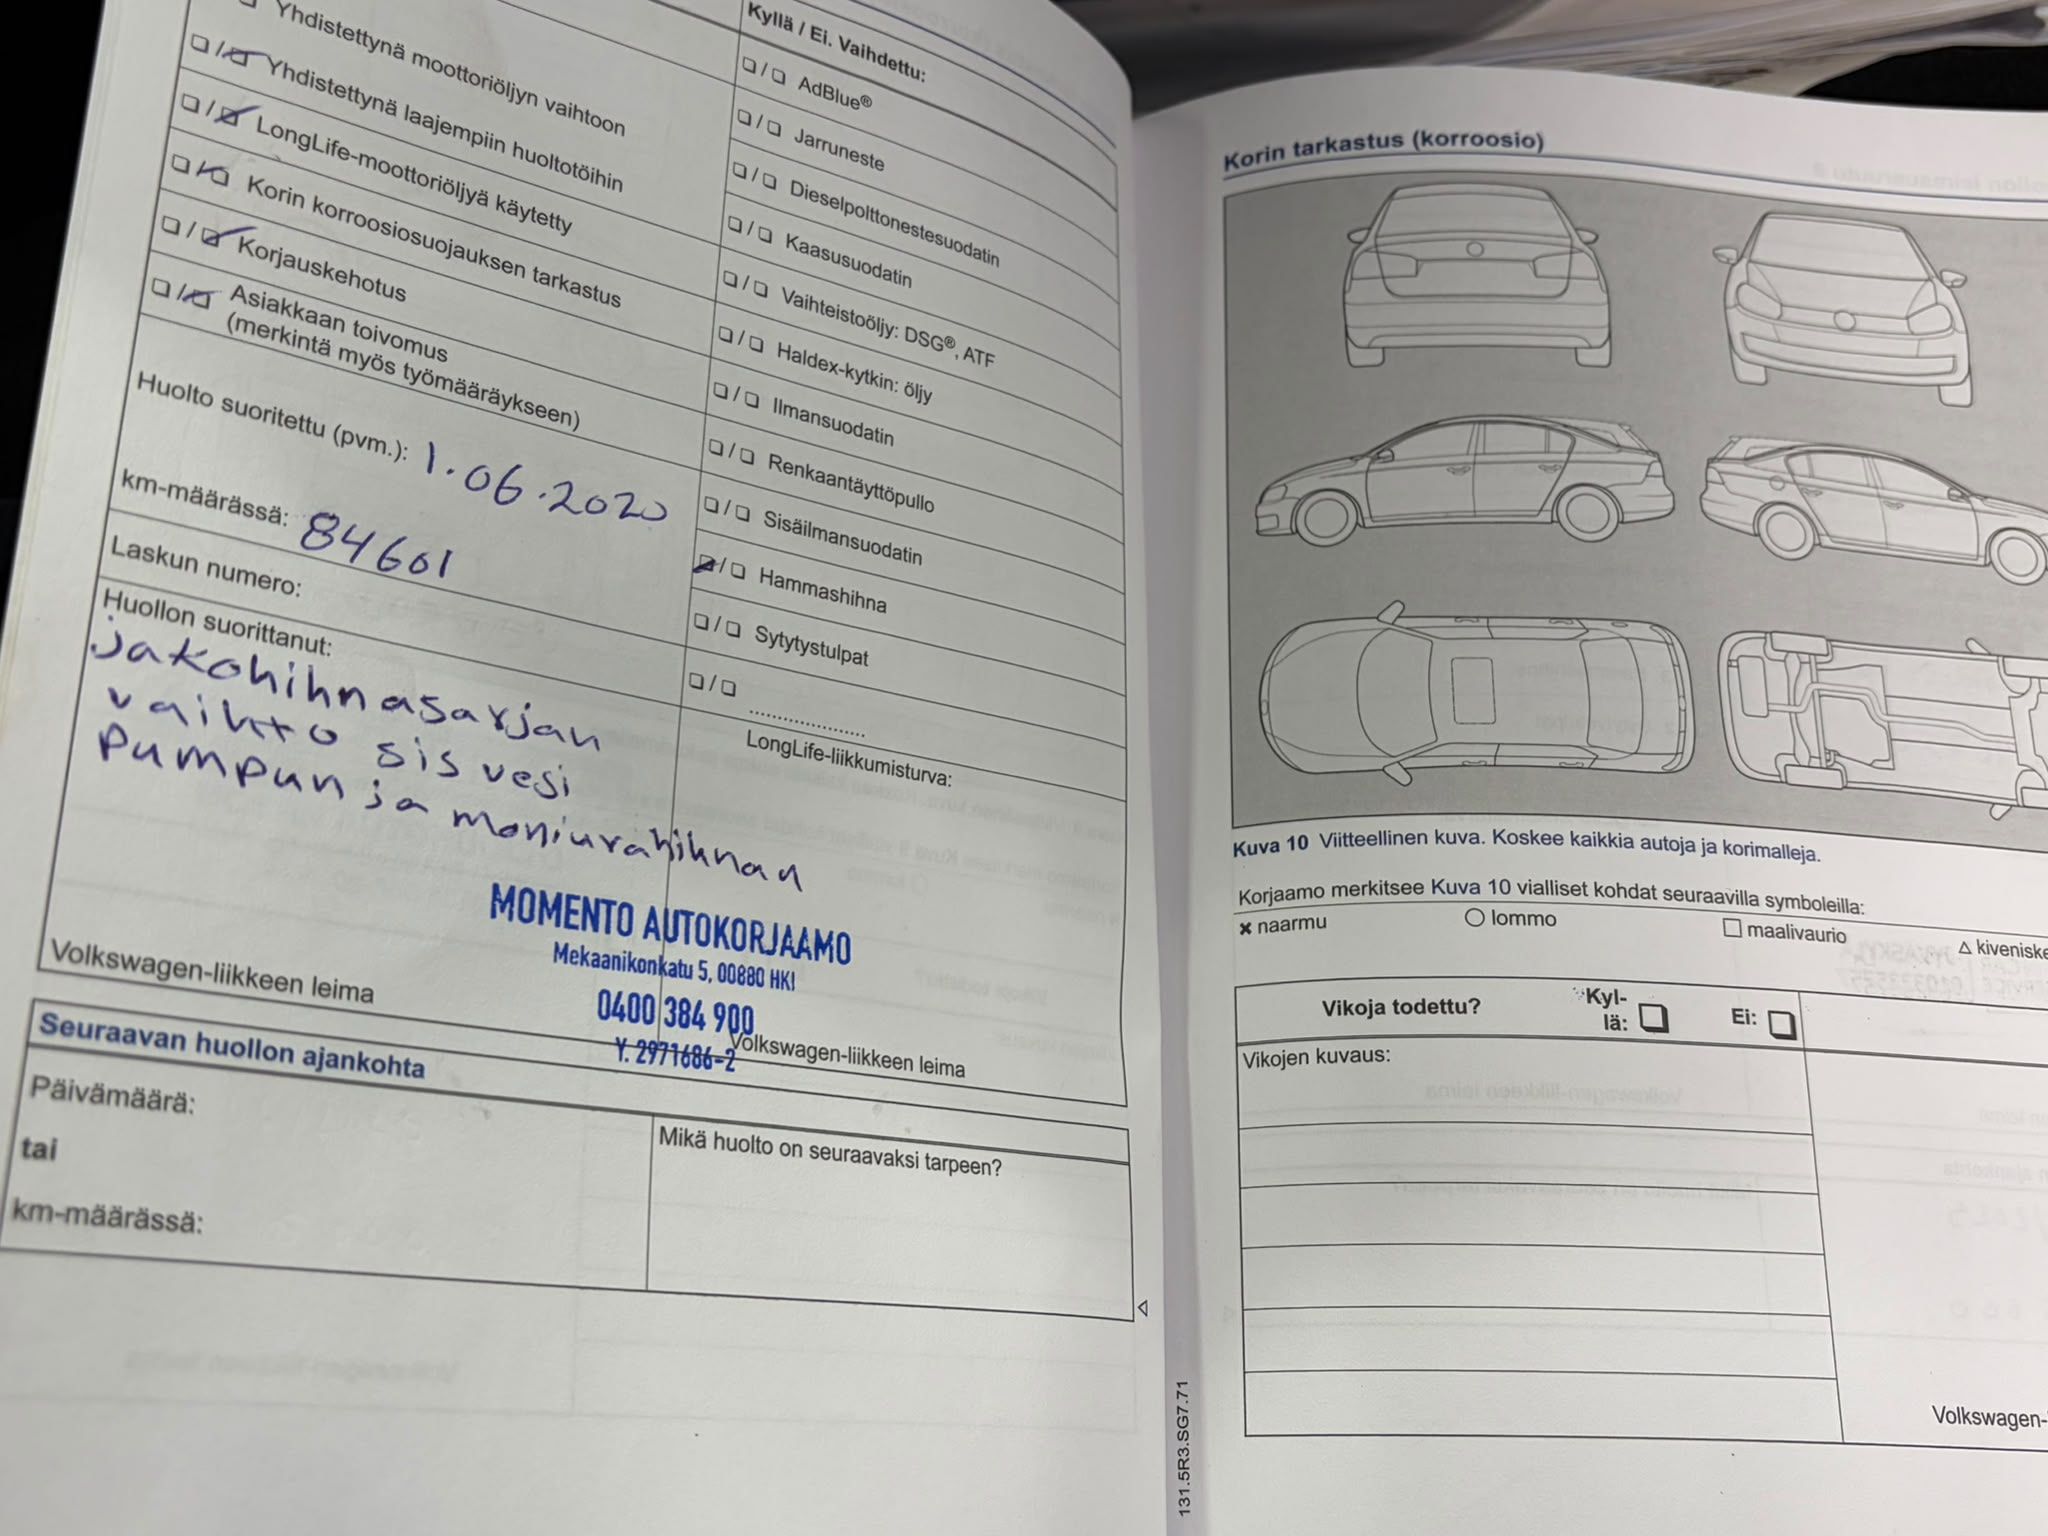 Yhdistettynä moottoriöljyn vaihtoon
❏ / ❏ Yhdistettynä laajempiin huoltotöihin
❏ / ❏ LongLife-moottoriöljyä käytetty
❏ / ❏ Korin korroosiosuojauksen tarkastus
❏ / ❏ Korjauskehotus
❏ / ❏ Asiakkaan toivomus
(merkintä myös työmääräykseen)
Huolto suoritettu (pvm.): 1.06.2020
km-määrässä: 84601
Laskun numero:
Huollon suorittanut:
jakohihnasarjan
vaihto sis vesi
pumpun ja moniurahihnan
MOMENTO AUTOKORJAAMO
Mekaanikonkatu 5, 00880 HKI
0400 384 900
Y. 2971686-2
Volkswagen-liikkeen leima
Kyllä / Ei. Vaihdettu:
❏ / ❏ AdBlue®
❏ / ❏ Jarruneste
❏ / ❏ Dieselpolttonestesuodatin
❏ / ❏ Kaasusuodatin
❏ / ❏ Vaihteistoöljy: DSG®, ATF
❏ / ❏ Haldex-kytkin: öljy
❏ / ❏ Ilmansuodatin
❏ / ❏ Renkaantäyttöpullo
❏ / ❏ Sisäilmansuodatin
❏ / ❏ Hammashihna
❏ / ❏ Sytytystulpat
❏ / ❏ ....................
LongLife-liikkumisturva:
Volkswagen-liikkeen leima
Seuraavan huollon ajankohta
Päivämäärä:
tai
km-määrässä:
Mikä huolto on seuraavaksi tarpeen?
131.5R3.SG7.71
Korin tarkastus (korroosio)
Kuva 10 Viitteellinen kuva. Koskee kaikkia autoja ja korimalleja.
Korjaamo merkitsee Kuva 10 vialliset kohdat seuraavilla symboleilla:
× naarmu ○ lommo □ maalivaurio △ kiveniske
Vikoja todettu? Kyl-
lä: ❏ Ei: ❏
Vikojen kuvaus:
Volkswagen-